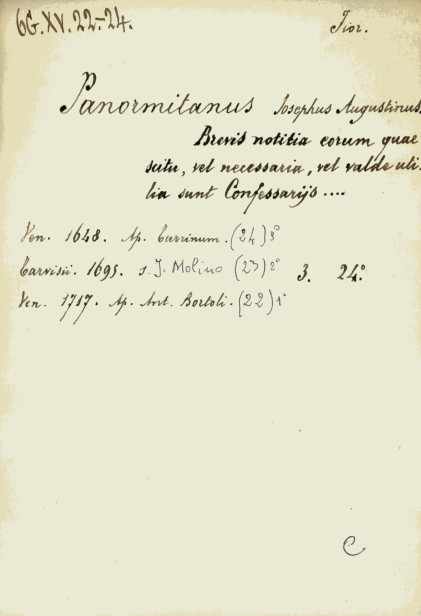 6G.XV.22-24.
Fior.
Panormitanus Josephus Augustinus.
Brevis notitia eorum quae
scitu, vel necessaria, vel valde uti-
lia sunt Confessarijs ....
Ven. 1648. Ap. Turrinum. (24) 3°
Tarvisii. 1695. s. J. Molino (23) 2° 3. 24°.
Ven. 1717. Ap. Ant. Bortoli. (22) 1°
C